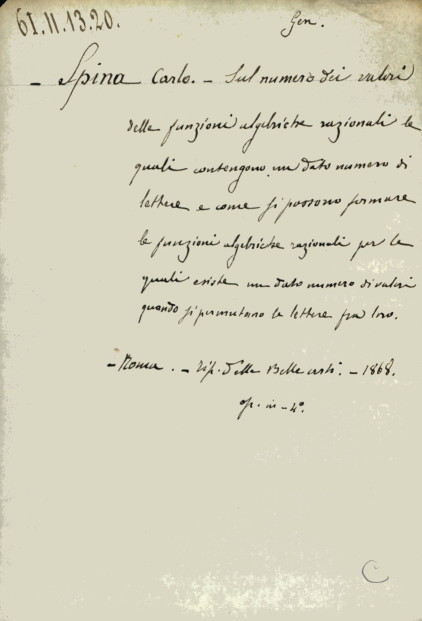 61.11.13.20.
Gen.
- Spina Carlo. - Sul numero dei valori
delle funzioni algebriche razionali le
quali contengono un dato numero di
lettere e come si possono formare
le funzioni algebriche razionali per le
quali esiste un dato numero di valori
quando si permutano le lettere fra loro.
- Roma. - Tip. delle Belle arti. - 1868.
op. in - 4°.
C